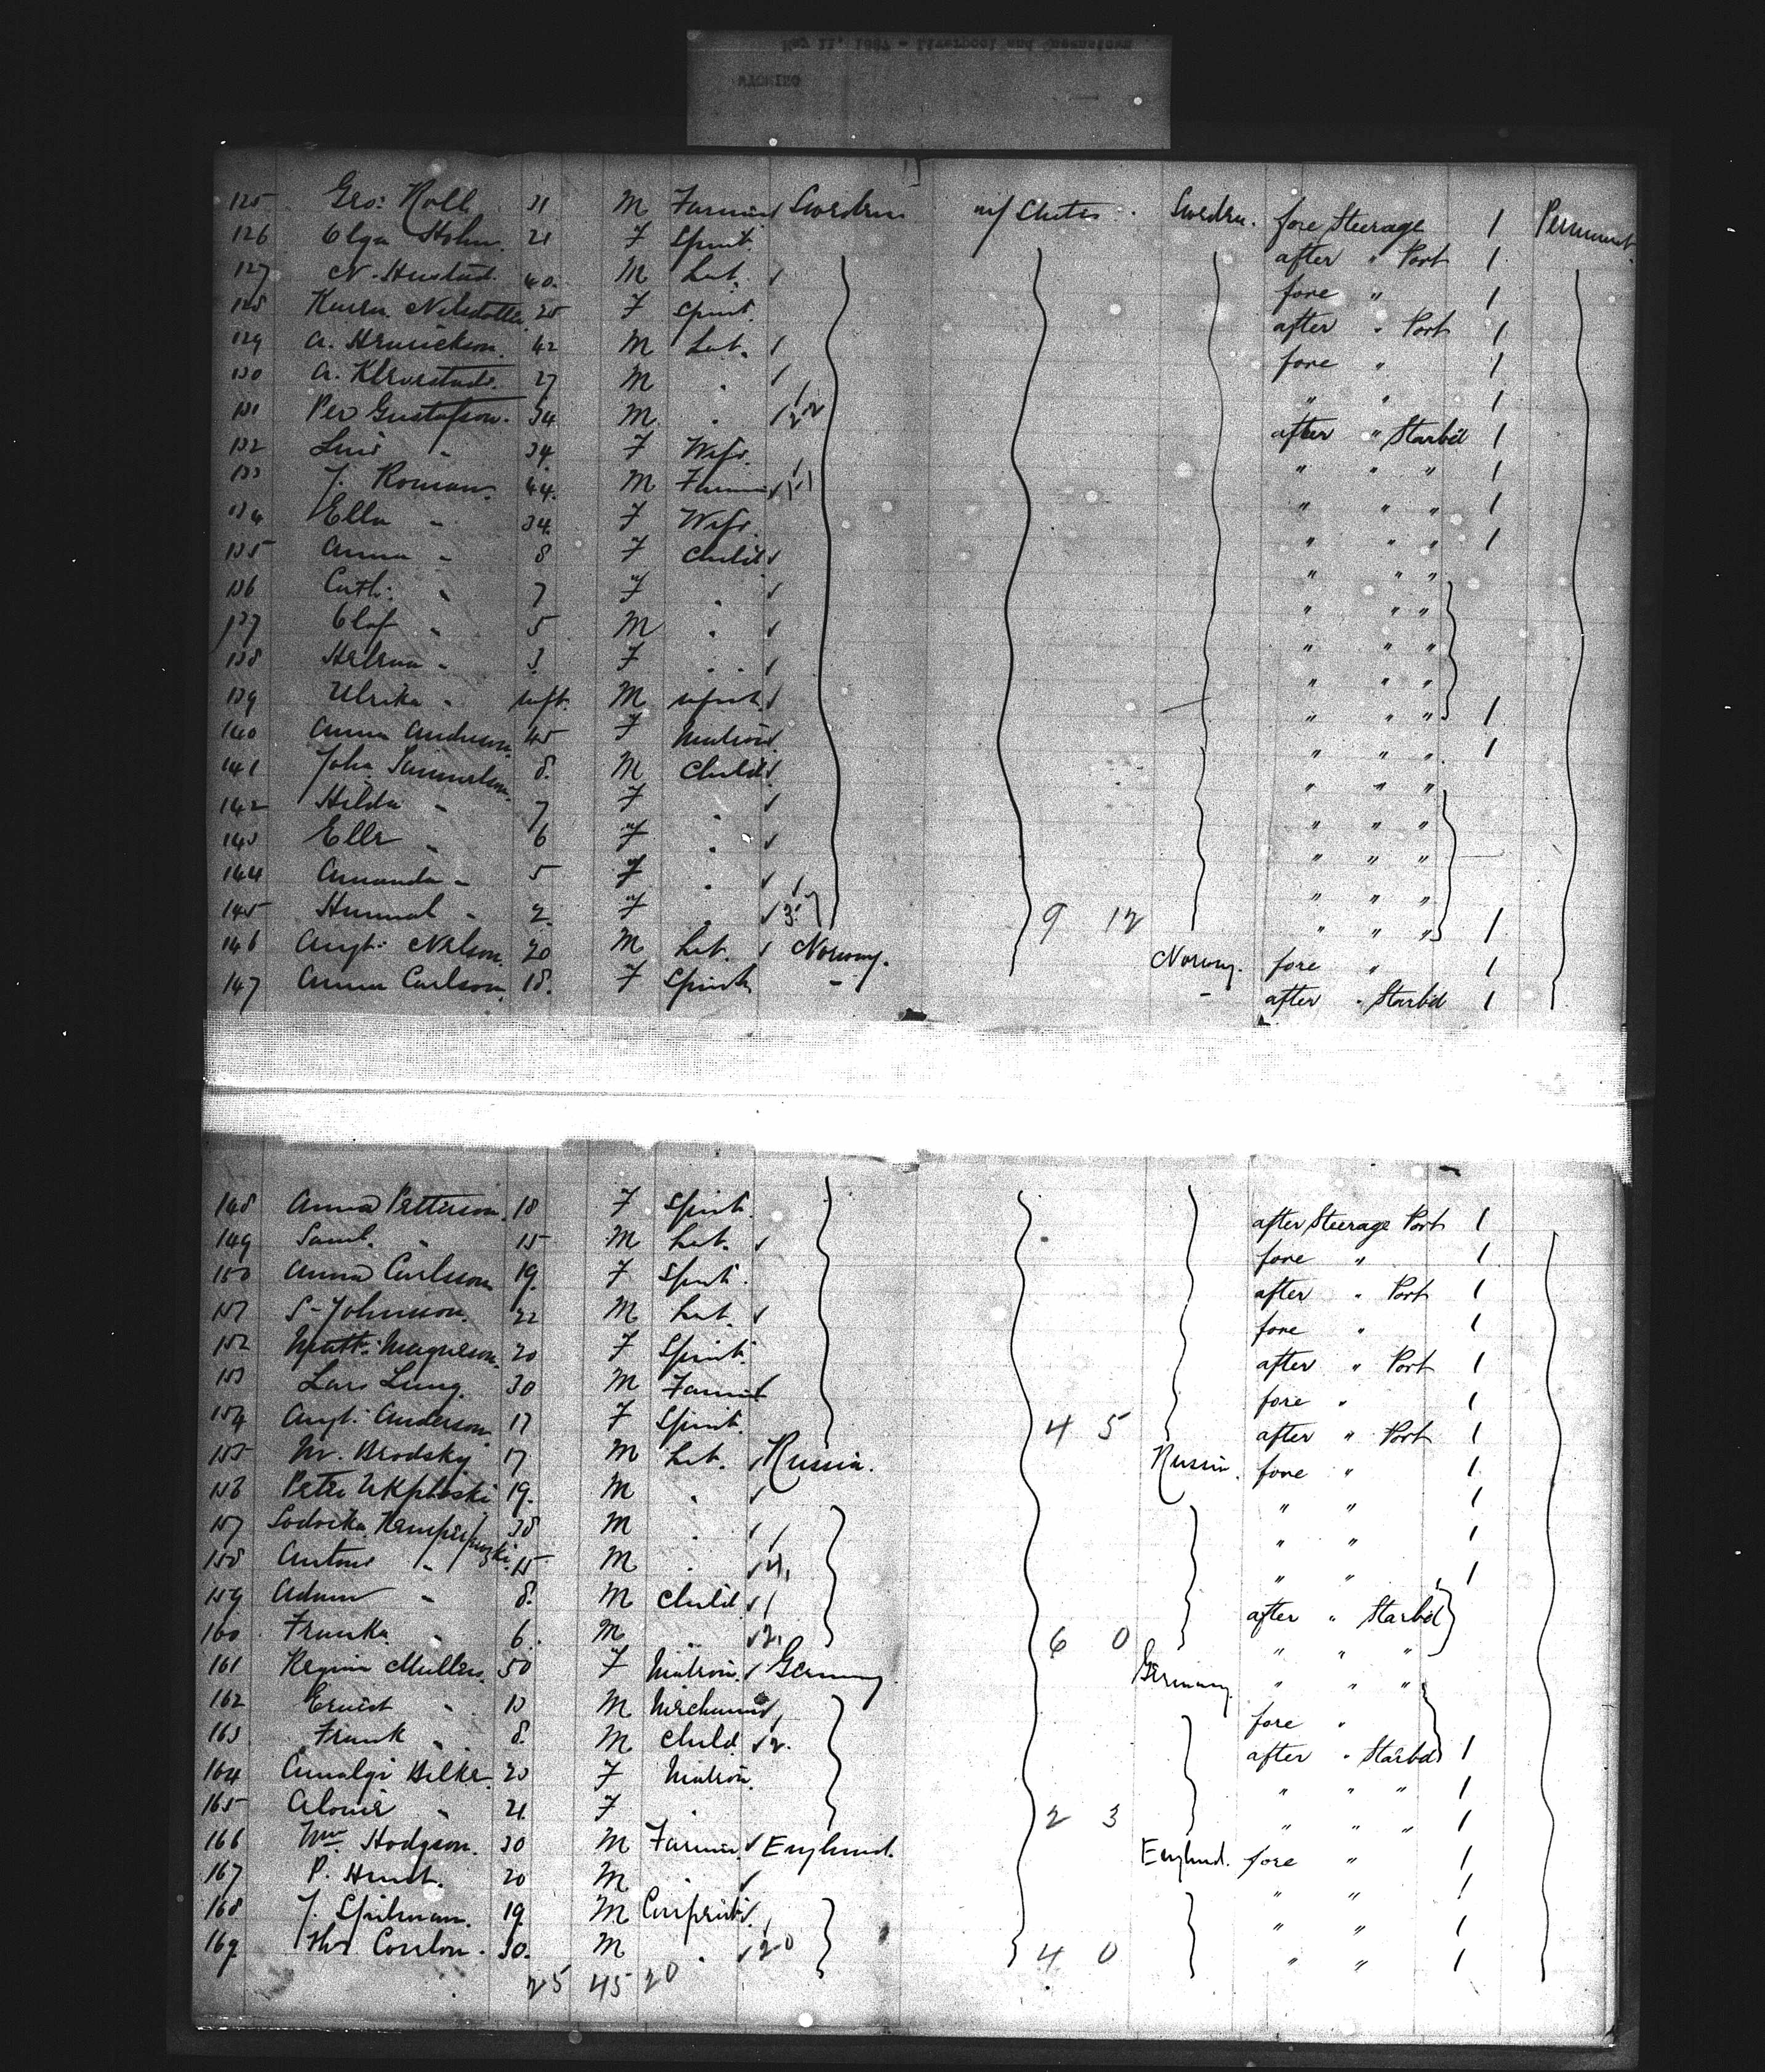 May 11, 1887 - Liverpool and Queenstown
WYOMING
125 Geo: Roll 31 M Farmer Sweden Sweden. fore Steerage 1 Permanent
126 Olga Holm. 21 F Spinst. after " Port 1
127 N. Hustad. 40. M Lab. fore " 1
128 Karen Nilsdotter 25 F Spinst. after " Port 1
129 A. Henrickson. 42 M Lab. fore " 1
130 A. 27 M . " " 1
131 Per Gustafson. 34 M . after " Starbd 1
132 " 34 F Wife. " " " 1
133 J. Roman. 44. M Farmer " " " 1
134 Ella " 34. F Wife. " " " 1
135 Anna " 8 F Child " " "
136 Cath: " 7 F . " " "
137 Olof " 5 M . " " "
138 Helena " 3 F . " " "
139 Ulrika " inft. M infnt. " " " 1
140 Anna Anderson. 45 F Matron. " " " 1
141 John Samuelson. 8. M Child " " "
142 Hilda " 7 F . " " "
143 Elle " 6 F . " " "
144 Amanda " 5 F . " " "
145 Hannah " 2 F . 9 12 " " " 1
146 Augt: Nelson. 20 M Lab. Norway. Norway. fore " 1
147 Anna Carlson. 18. F Spinst. " " after " Starbd 1
148 Anna Petterson. 18 F Spinst. after Steerage Port 1
149 Saml. " 15 M Lab. fore " 1
150 Anna Carlsson 19. F Spinst. after " Port 1
151 S. Johnson. 22 M Lab. fore " 1
152 Matt: Magneson. 20 F Spinst. after " Port 1
153 Lars Lung. 30 M Farmer fore " 1
154 Augt: Anderson. 17 F Spinst. 4 5 after " Port 1
155 M. Brodsky 17 M Lab. Russia. Russia. fore " 1
156 Peter 19. M . " " 1
157 38 M . " " 1
158 Anton " 15 M . " " 1
159 Adam " 8. M Child after " Starbd
160 Franka " 6. M " 6 0 " " "
161 Regina Mullers. 50 F Matron. Germany Germany. " " "
162 Ernest " 13 M Mechanic fore "
163 Frank " 8. M Child after " Starbd 1
164 Hilke. 20 F Matron. " " " 1
165 " 21 F . 2 3 " " " 1
166 Wm Hodgson. 30 M Farmer England. England. fore " 1
167 P. Hunt. 20 M . " " 1
168 J. Spilman. 19 M " " 1
169 Thos Conlon. 30. M . 4 0 " " 1
25 45 20